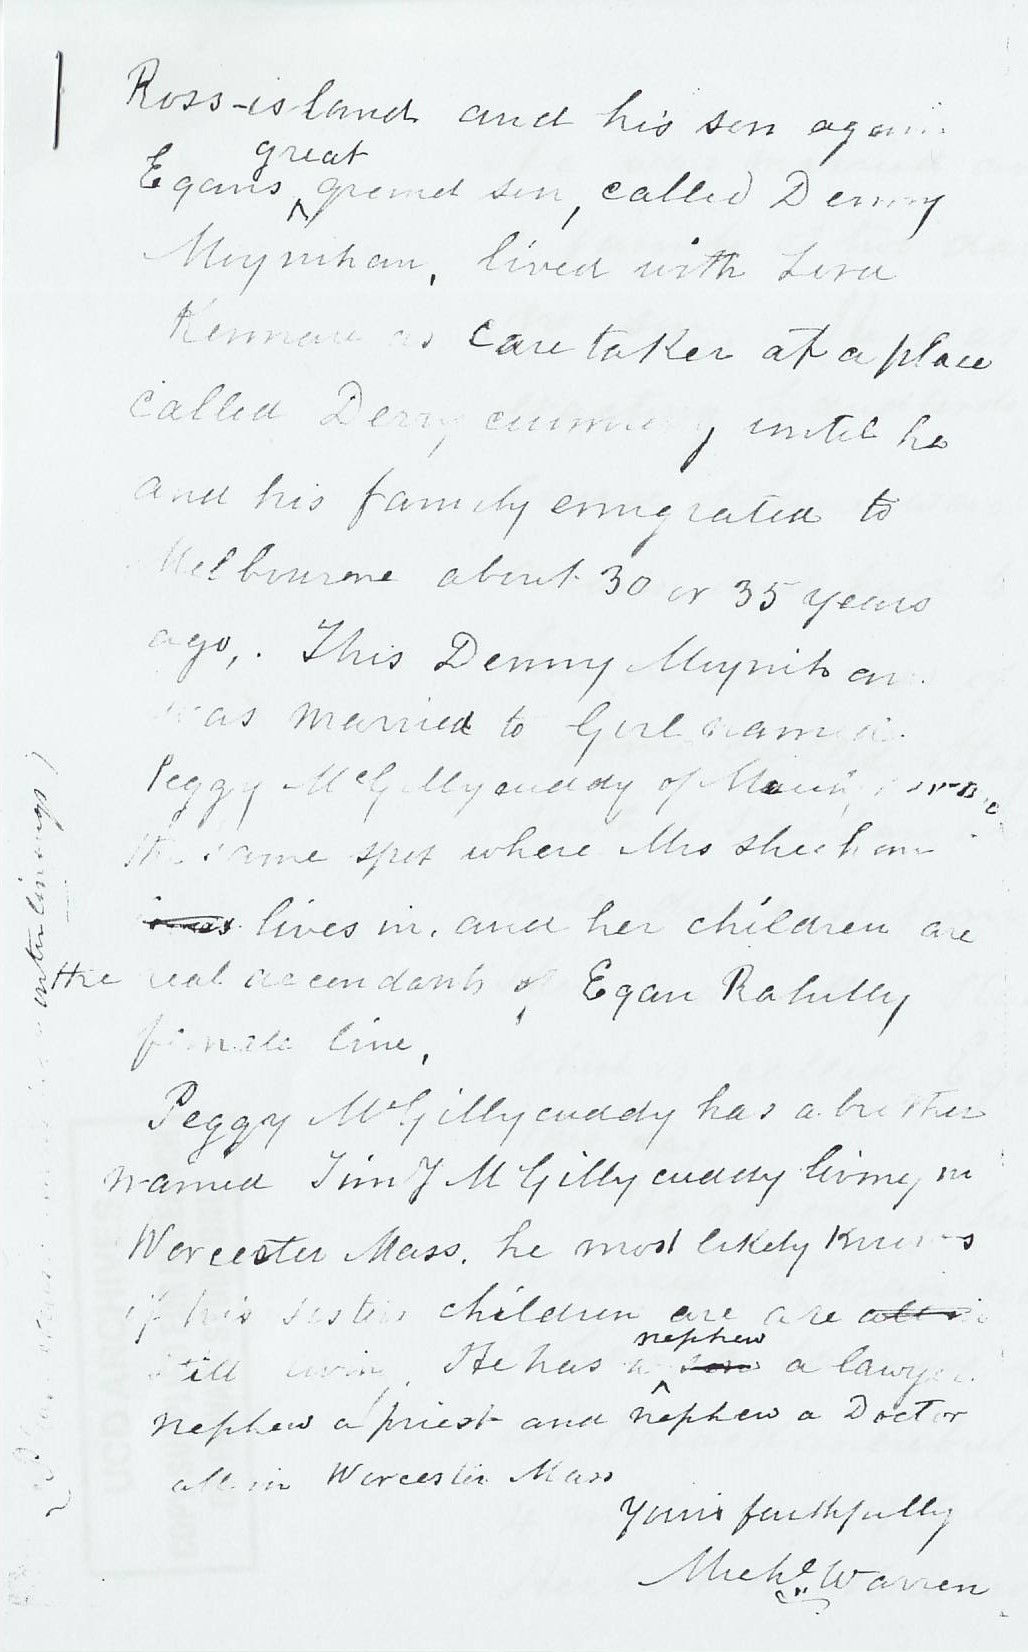 Ross-island and his son again
great
Egans ^ grand son, called Denny
Moynihan, lived with Lord
Kenmare as care taker at a place
called Derrycunnihy, until he
and his family emigrated to
Melbourne about 30 or 35 years
ago,. This Denny Moynihan
was married to Girl named
Peggy McGillycuddy of
the same spot where Mrs Sheehan
lives in, and her children are
the real decendants of Egan Rahilly
female line,
Peggy McGillycuddy has a brother
named Timy McGillycuddy living in
Worcester Mass. he most likely knows
if his sisters children are are
nephew
still living. He has a ^ son a lawyer
nephew a priest and nephew a Doctor
all in Worcester Mass
Yours faithfully
Michl Warren
interlinings)